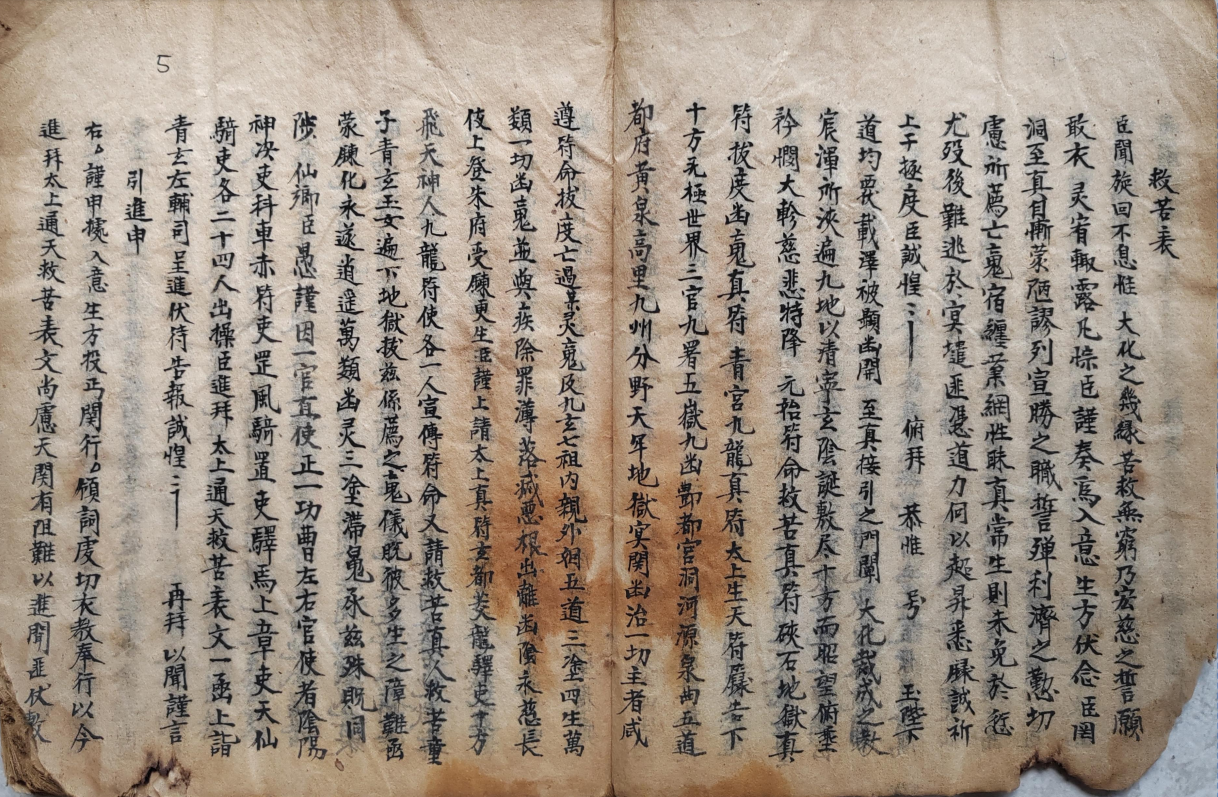 救苦表
臣聞旋回不息惟大化之幾緣苦救無窮乃宏慈之誓願
敢衣灵宥輙露凡悰臣謹奏爲入意生方伏念臣罔
洞至真自慚蒙陋謬列宣勝之職誓殚利濟之懃切
慮所薦亡䰟宿纏業網性昧真常生則未免於愆
尤殁後難逃於冥壚匪憑道力何以超昇悉露誠祈
上干極度臣誠惶 俯拜 恭惟 号 玉陛下
道均覆載澤被顯幽開 至真接引之門闡 大化裁成之教
宸渾所浹遍九地以清寧玄陰誕敷尽十方而昭望俯垂
矜憫大軫慈悲特降 元始符命救苦真符破石地獄真
符拔度幽䰟真符青宮九龍真符太上生天符籙告下
十方无極世界三官九署五嶽九幽酆都官洞河源泉曲五道
都府黃泉高里九州分野天牢地獄冥関幽治一切主者咸
遵符命拔度亡過某灵䰟及九玄七祖内親外姻五道三塗四生萬
類一切幽䰟並與疾除罪薄落滅悪根出離幽陰永慈長
伎上登朱府受鍊更生臣謹上請太上真符玄都火龍驛吏十方
飛天神人九龍符使各一人宣傳符命又請救苦真人救苦童
子青玄玉女遍下地獄拔兹係薦之䰟儀既彼多生之障難函
蒙鍊化永遂逍遥萬類幽灵三塗滯䰟承兹殊貺同
陟 仙鄉臣愚謹因一官直使正一功曹左右官使者陰陽
神决吏科車赤符吏罡風騎置吏驛馬上章吏天仙
騎吏各二十四人出操臣進拜太上通天救苦表文一函上詣
青玄左輔司呈進伏待告報誠惶 再拜 以聞謹言
引進申
右謹申據入意生方投丐関行傾詞虔切衣教奉行以今
進拜太上通天救苦表文尚慮天関有阻難以進聞匪伏敷
5